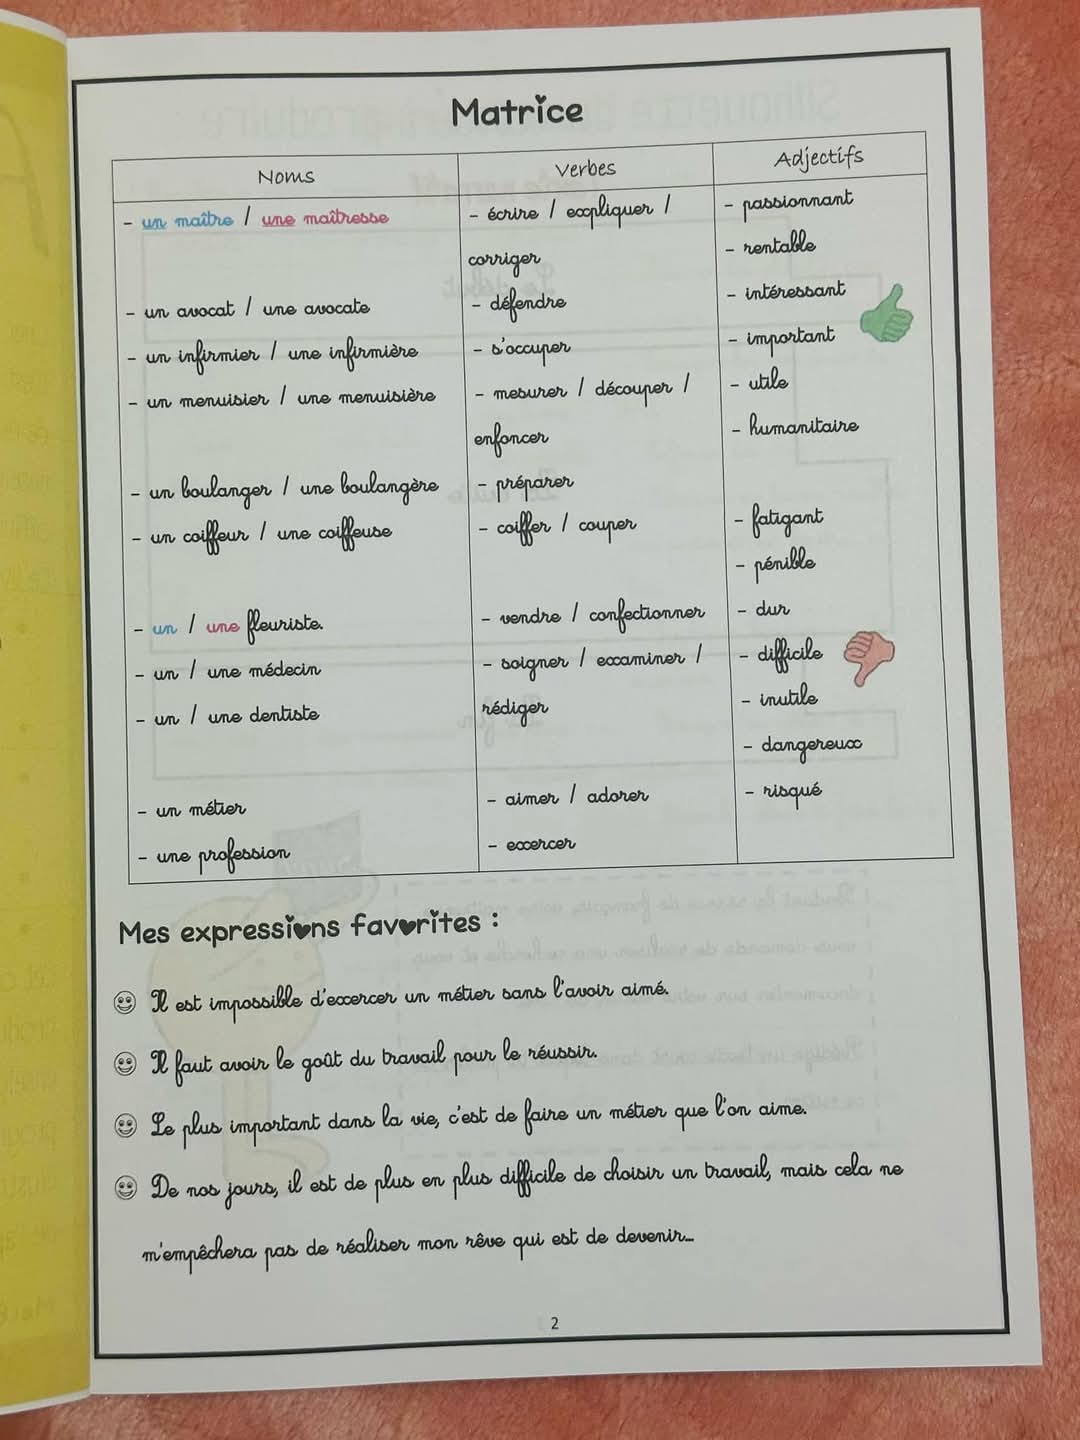 Matrice
Noms
Verbes
Adjectifs
- un maître / une maîtresse
- un avocat / une avocate
- un infirmier / une infirmière
- un menuisier / une menuisière
- un boulanger / une boulangère
- un coiffeur / une coiffeuse
- un / une fleuriste.
- un / une médecin
- un / une dentiste
- un métier
- une profession
- écrire / expliquer /
corriger
- défendre
- s'occuper
- mesurer / découper /
enfoncer
- préparer
- coiffer / couper
- vendre / confectionner
- soigner / examiner /
rédiger
- aimer / adorer
- exercer
- passionnant
- rentable
- intéressant
- important
- utile
- humanitaire
- fatigant
- pénible
- dur
- difficile
- inutile
- dangereux
- risqué
Mes expressions favorites :
Il est impossible d'exercer un métier sans l'avoir aimé.
Il faut avoir le goût du travail pour le réussir.
Le plus important dans la vie, c'est de faire un métier que l'on aime.
De nos jours, il est de plus en plus difficile de choisir un travail, mais cela ne
m'empêchera pas de réaliser mon rêve qui est de devenir...
2